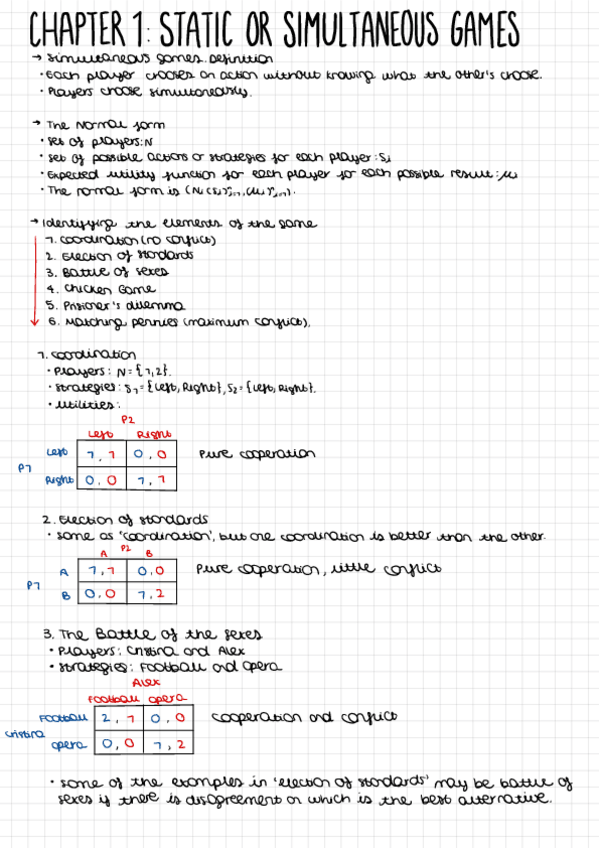 CHAPTER 1: STATIC OR SIMULTANEOUS GAMES
→ Simultaneous games. Definition
· Each player chooses an action without knowing what the other's choose.
· Players choose simultaneously.
→ The Normal form
· Set of players: N
· Set of possible actions or strategies for each player: Si
· Expected utility function for each player for each possible result: μi
· The normal form is (N,{Si}ⁿi=1,{μi}ⁿi=1).
→ Identifying the elements of the game
1. Coordination (no conflict)
2. Election of standards
3. Battle of sexes
4. Chicken Game
5. Prisioner's dilemma
6. Matching pennies (maximum conflict).
1. Coordination
· Players: N = {1,2}.
· Strategies: S1 = {Left, Right}, S2 = {Left, Right}.
· Utilities:
P2
Left Right
Left 1, 1 0, 0 Pure cooperation
P1
Right 0, 0 1, 1
2. Election of standards
· Same as 'coordination', but one coordination is better than the other.
A P2 B
A 1,1 0,0 Pure cooperation, little conflict
P1
B 0,0 1,2
3. The Battle of the sexes
· Players: Cristina and Alex
· Strategies: Football and Opera
Alex
Football Opera
Football 2, 1 0, 0 Cooperation and conflict
Cristina
Opera 0, 0 1, 2
· Some of the examples in 'election of standards' may be battle of
sexes if there is disagreement on which is the best alternative.